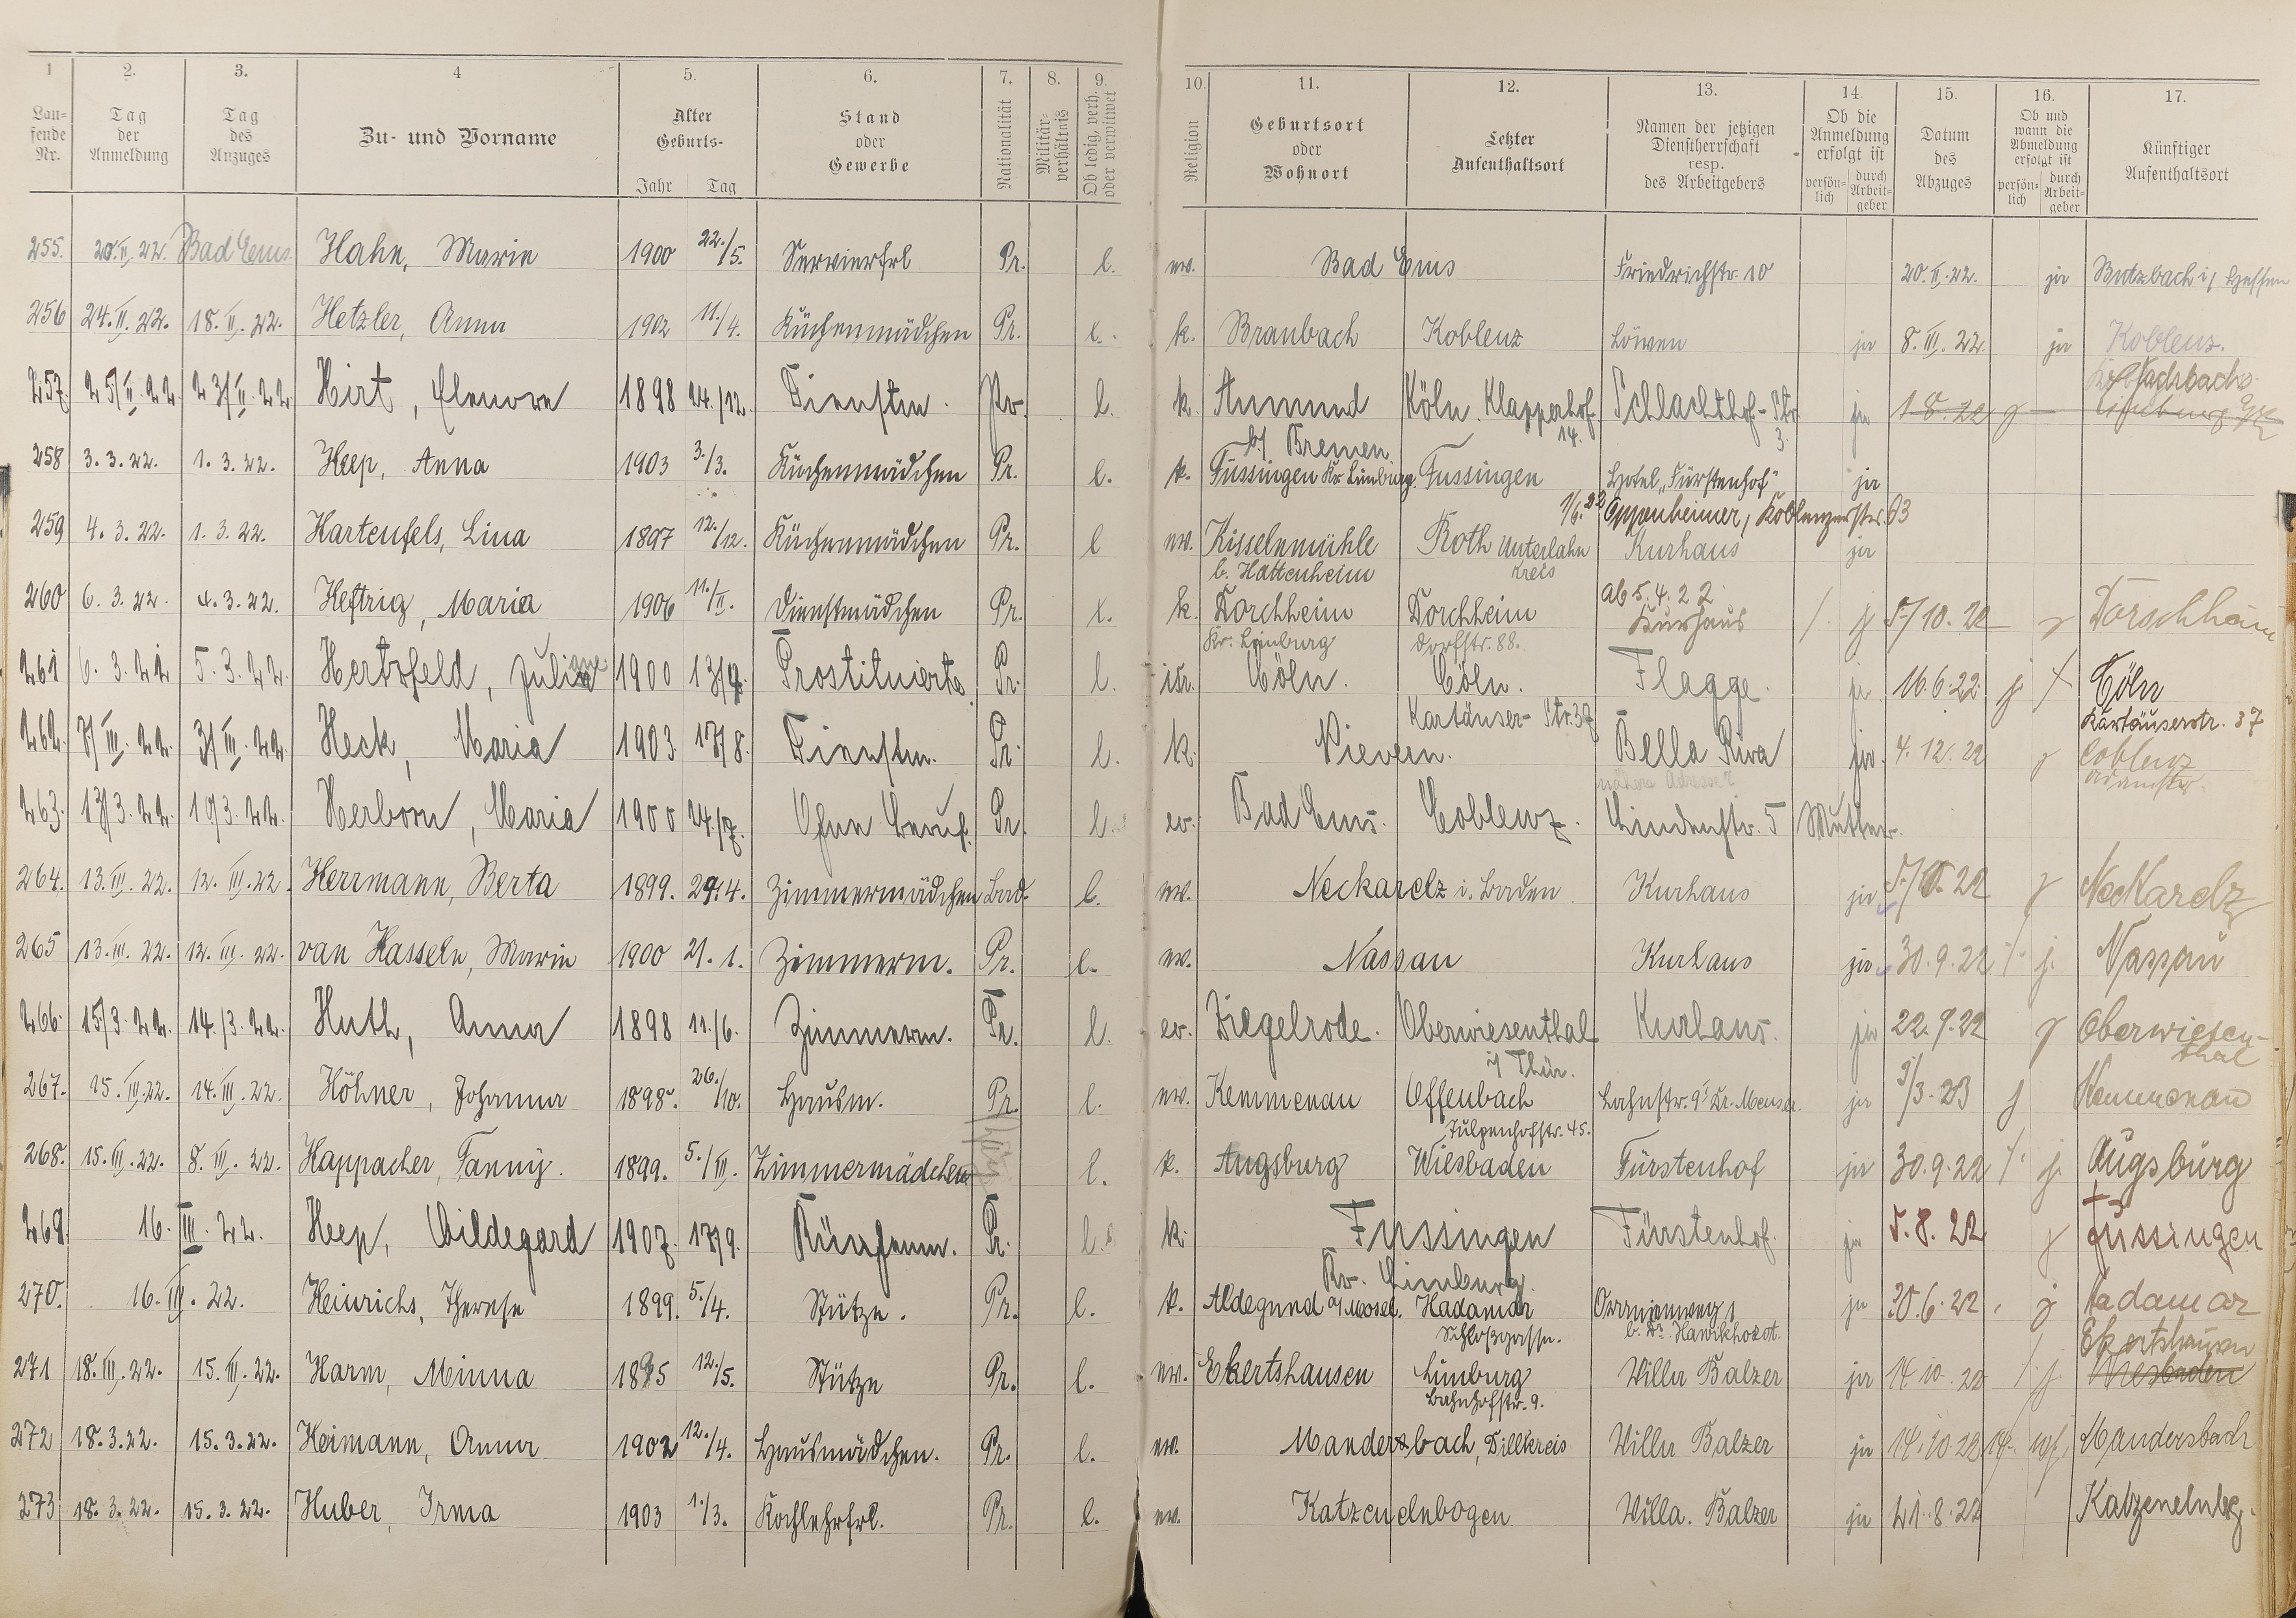 1 2. 3. 4 5. 6. 7. 8. 9. 10. 11. 12. 13. 14. 15. 16. 17.
Laufende Nr. Tag der Anmeldung Tag des Anzuges Zu- und Vorname Alter Geburts- Jahr Tag Stand oder Gewerbe Nationalität Militärverhältnis Ob ledig, verh. oder verwitwet Religion Geburtsort oder Wohnort Letzter Aufenthaltsort Namen der jetzigen Dienstherrschaft resp. des Arbeitgebers Ob die Anmeldung erfolgt ist persönlich durch Arbeitgeber Datum des Abzuges Ob und wann die Abmeldung erfolgt ist persönlich durch Arbeitgeber Künftiger Aufenthaltsort
255. 20.II.22. Bad Ems Hahn, Marie 1900 22./5. Servierfrl Pr. l. ev. Bad Ems Friedrichstr. 10 20.II.22. ja Butzbach i/ Hessen
256 24.II.22. 18.II.22. Hetzler, Anna 1902 11./4. Küchenmädchen Pr. l. k. Braubach Koblenz Löwen ja 8.III.22. ja Koblenz.
257. 25/II.22 23/II.22 Hirt, Elenore 1898 24./12. Dienstm. Pr. l. k. Aumund b/ Bremen Köln. Klapperhof 14. Schlachthof-Str 3. ja 1.8.22
258 3.3.22. 1.3.22. Heep, Anna 1903 3./3. Küchenmädchen Pr. l. k. Füssingen Kr. Limburg. Fussingen Hotel „Fürstenhof" ja
259 4.3.22. 1.3.22. Hartenfels, Lina 1897 12./12. Küchenmädchen Pr. l ev. Kisselmühle b. Hattenheim Roth Unterlahn kreis 1/6.22 Oppenheimer, Koblenzerstr. 63 Kurhaus ja
260 6.3.22. 4.3.22. Heftrig, Maria 1906 11./II. Dienstmädchen Pr. l. k. Dorchheim Kr. Limburg Dorchheim Dorfstr. 88. ab 5.4.22 Kurhaus / j 5/10.22 j Dorschheim
261 6.3.22 5.3.22. Hertsfeld, Juliane 1900 13/9. Prostituierte Pr. l. isr. Cöln. Cöln. Kartäuser-Str. 37 Flagge. ja 16.6.22 j / Cöln Kartäuserstr. 37
262. 7/III.22. 3/III.22. Heck, Maria 1903. 17/8. Dienstm. Pr. l. k. Nievern. Bella Riva ja. 4.12.22 j Coblenz
263. 13/3.22. 10/3.22. Herborn, Maria 1900 24./7. Ohne Beruf. Pr. l. ev. Bad Ems. Coblenz. Lindenstr. 5 Mutter.
264. 13.III.22. 12.III.22. Herrmann, Berta 1899. 29.4. Zimmermädchen Bad. l. ev. Neckarelz i. Baden Kurhaus ja 22 j Neckarelz
265 13.III.22. 12.III.22. van Hasseln, Marie 1900 21.1. Zimmerm. Pr. l. ev. Nassau Kurhaus ja 30.9.22 / j. Nassau
266. 15/3.22. 14./3.22. Huth, Anna 1898 11./6. Zimmerm. Pr. l. ev. Ziegelrode. Oberwiesenthal i/ Thür. Kurhaus. ja 22.9.22 j Oberwiesenthal
267. 15.III.22. 14.III.22. Höhner, Johanna 1898. 26./10. Hausm. Pr. l. ev. Kemmenau Offenbach Tulpenhofstr. 45. Lahnstr. 9 ja /3.23 j Kemmenau
268. 15.III.22. 8.III.22. Happacher, Fanny. 1899. 5./III. Zimmermädchen l. k. Augsburg Wiesbaden Fürstenhof ja 30.9.22 / j. Augsburg
269. 16.III.22. Heep, Hildegard 1907. 17/9. Küchenm. Pr. l. k. Fussingen Kr. Limburg Fürstenhof. ja 5.8.22 j Fussingen
270. 16.III.22. Heinrichs, Therese 1899. 5./4. Stütze. Pr. l. k. Aldegund a/ Mosel. Hadamar Schloßgasse. Oranienweg 1 ja 30.6.22 j Hadamar
271 18.III.22. 15.III.22. Harm, Minna 1895 12./5. Stütze Pr. l. ev. Ekertshausen Limburg Bahnhofstr. 9. Villa Balzer ja 14.10.22 / j. Ekertshausen Wiesbaden
272 18.3.22. 15.3.22. Heimann, Anna 1902 12./4. Hausmädchen. Pr. l. ev. Mandersbach, Dillkreis Villa Balzer ja 14.10.22 Mandersbach
273 18.3.22. 15.3.22. Huber, Irma 1903 1./3. Kochlehrfrl. Pr. l. ev. Katzenelnbogen Villa. Balzer ja 21.8.22 Katzenelnbg.